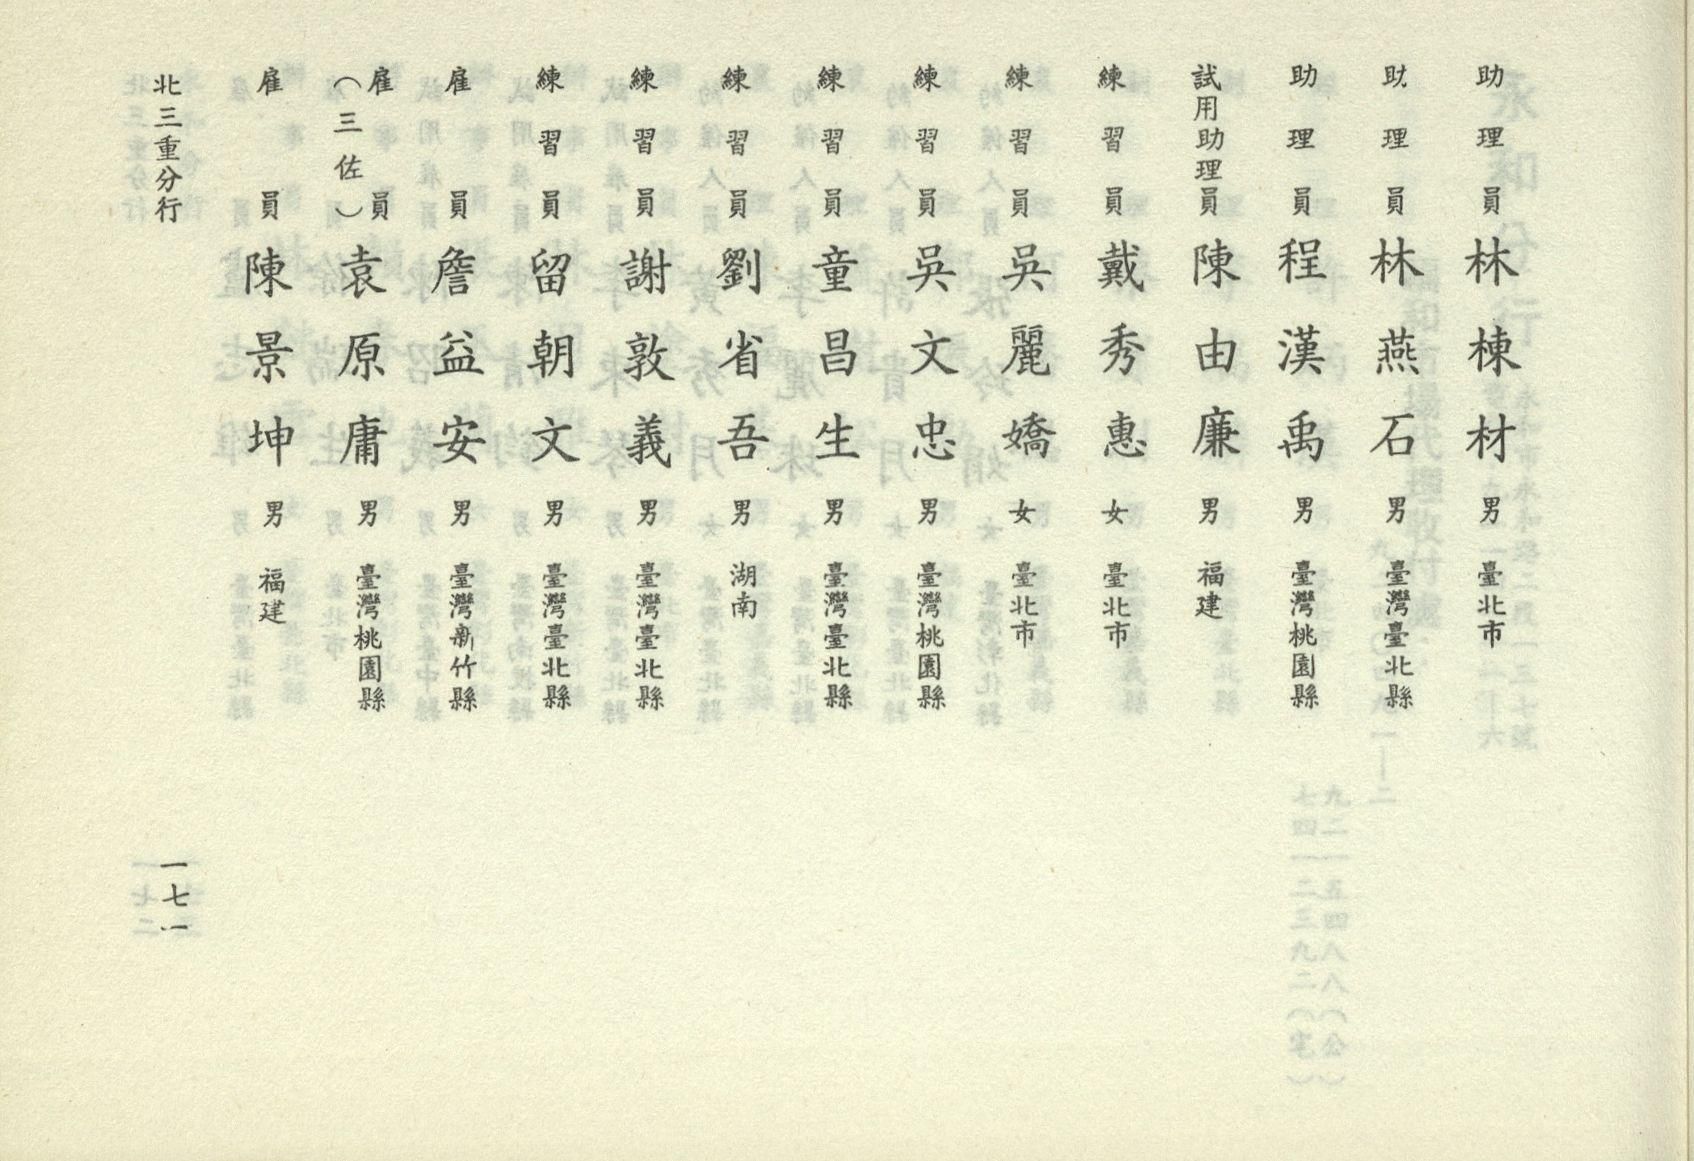 助理員 林棟材 男 臺北市
助理員 林燕石 男 臺灣臺北縣
助理員 程漢禹 男 臺灣桃園縣
試用助理員 陳由廉 男 福建
練習員 戴秀惠 女 臺北市
練習員 吳麗嬌 女 臺北市
練習員 吳文忠 男 臺灣桃園縣
練習員 童昌生 男 臺灣臺北縣
練習員 劉省吾 男 湖南
練習員 謝敦義 男 臺灣臺北縣
練習員 留朝文 男 臺灣臺北縣
雇員 詹益安 男 臺灣新竹縣
雇員 袁原庸 男 臺灣桃園縣
（三佐）
雇員 陳景坤 男 福建
北三重分行
一七一